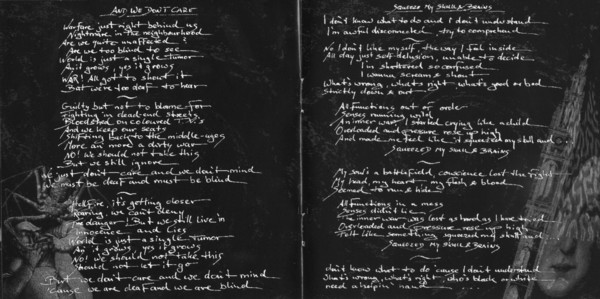 AND WE DON'T CARE
Warfare just right behind us
Nightmare in the neighbourhood
Are we quite unaffected
Are we too blind to see
World is just a single tumor
As it grows, yes it grows
WAR! All got to shout it
But we're too deaf to hear
Guilty but not to blame for
Fighting in dead-end streets
Bloodshed on coloured T.V.s
And we keep our seats
Shifting back to the middle-ages
More an more a dirty war
NO! We should not take this
But we still ignore
We just don't care and we don't mind
We must be deaf and must be blind
Hellfire, it's getting closer
Roaring, we can't deny
The danger! But we still live in
Innocence and Lies
World is just a single Tumor
As it grows, yes it grows
No! We should not take this
Should not let it go
But we don't care and we don't mind
'cause we are deaf and we are blind
SQUEEZED MY SKULL & BRAINS
I don't know what to do and I don't understand
I'm awful disconnected - try to comprehend
No I don't like myself, the way I feel inside
All day just self-delusion, unable to decide
I'm shattered so confused
I wanna scream & shout
What's wrong, what's right - what's good or bad
Strictly down & out
All functions out of order
Senses running wild
An inner war I started crying like a child
Overloaded and pressure rose up high
And made me feel like it squeezed my skull and
SQUEEZED MY SKULL & BRAINS
My soul a battlefield, conscience lost the fight
My head my heart my flesh & blood
Seemed to run & hide
All functions in a mess
Senses didn't lie
The inner war was lost as hard as I have tried
Overloaded and pressure rose up high
Felt like something squeezed my skull and
SQUEEZED MY SKULL & BRAINS
Don't know what to do 'cause I don't understand
What's wrong, what's right, who's black or white
need a helpin' hand